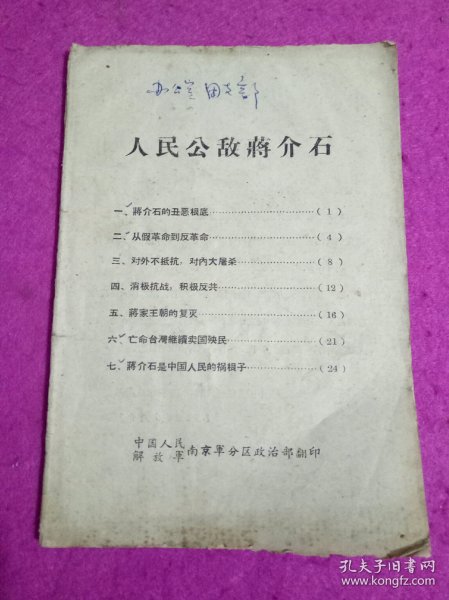 办公室 团支部
人民公敌蔣介石
一、蔣介石的丑恶根底……………………………（1）
二、从假革命到反革命……………………………（4）
三、对外不抵抗，对內大屠杀……………………（8）
四、消极抗战，积极反共…………………………（12）
五、蔣家王朝的复灭………………………………（16）
六、亡命台灣継續卖国殃民………………………（21）
七、蔣介石是中国人民的祸根子…………………（24）
中国人民
解放軍
南京軍分区政治部翻印
孔夫子旧书网
www.kongfz.com